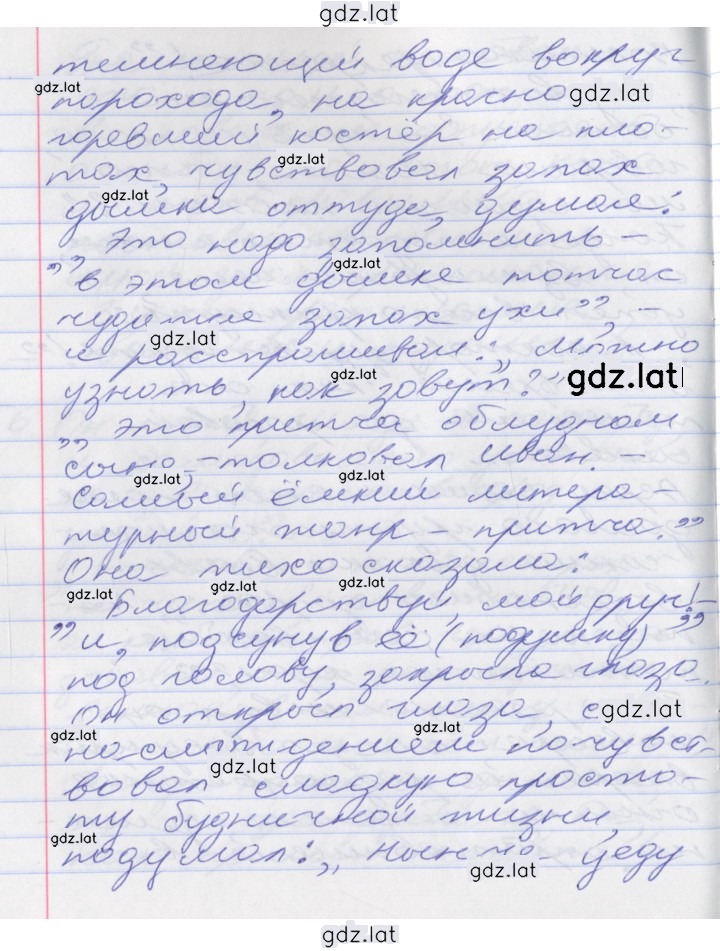 gdz.lat
темнеющий воде вокруг
gdz.lat
парохода, на красно gdz.lat
горевший костёр на пло-
gdz.lat
тах, чувствовал запах
gdz.lat
дымка оттуда, думал:
„Это надо запомнить –
gdz.lat
в этом дымке тотчас
чудится запах ухи”, –
gdz.lat
и расспрашивал: „Можно
gdz.lat
узнать, как зовут?” gdz.lat
„Это притча облудном
сыне, – толковал Иван. –
gdz.lat gdz.lat
Самый ёмкий литера-
турный жанр – притча.”
Она тихо сказала:
gdz.lat gdz.lat gdz.lat
„Благодарствуй, мой друг!” –
и, подсунув её (подушку)
под голову, закрыла глаза.
Он открыл глаза, с gdz.lat
gdz.lat gdz.lat
наслаждением почувст-
gdz.lat
вовал сладкую просто-
ту будничной жизни,
gdz.lat
подумал: „Нынче уеду
gdz.lat
gdz.lat